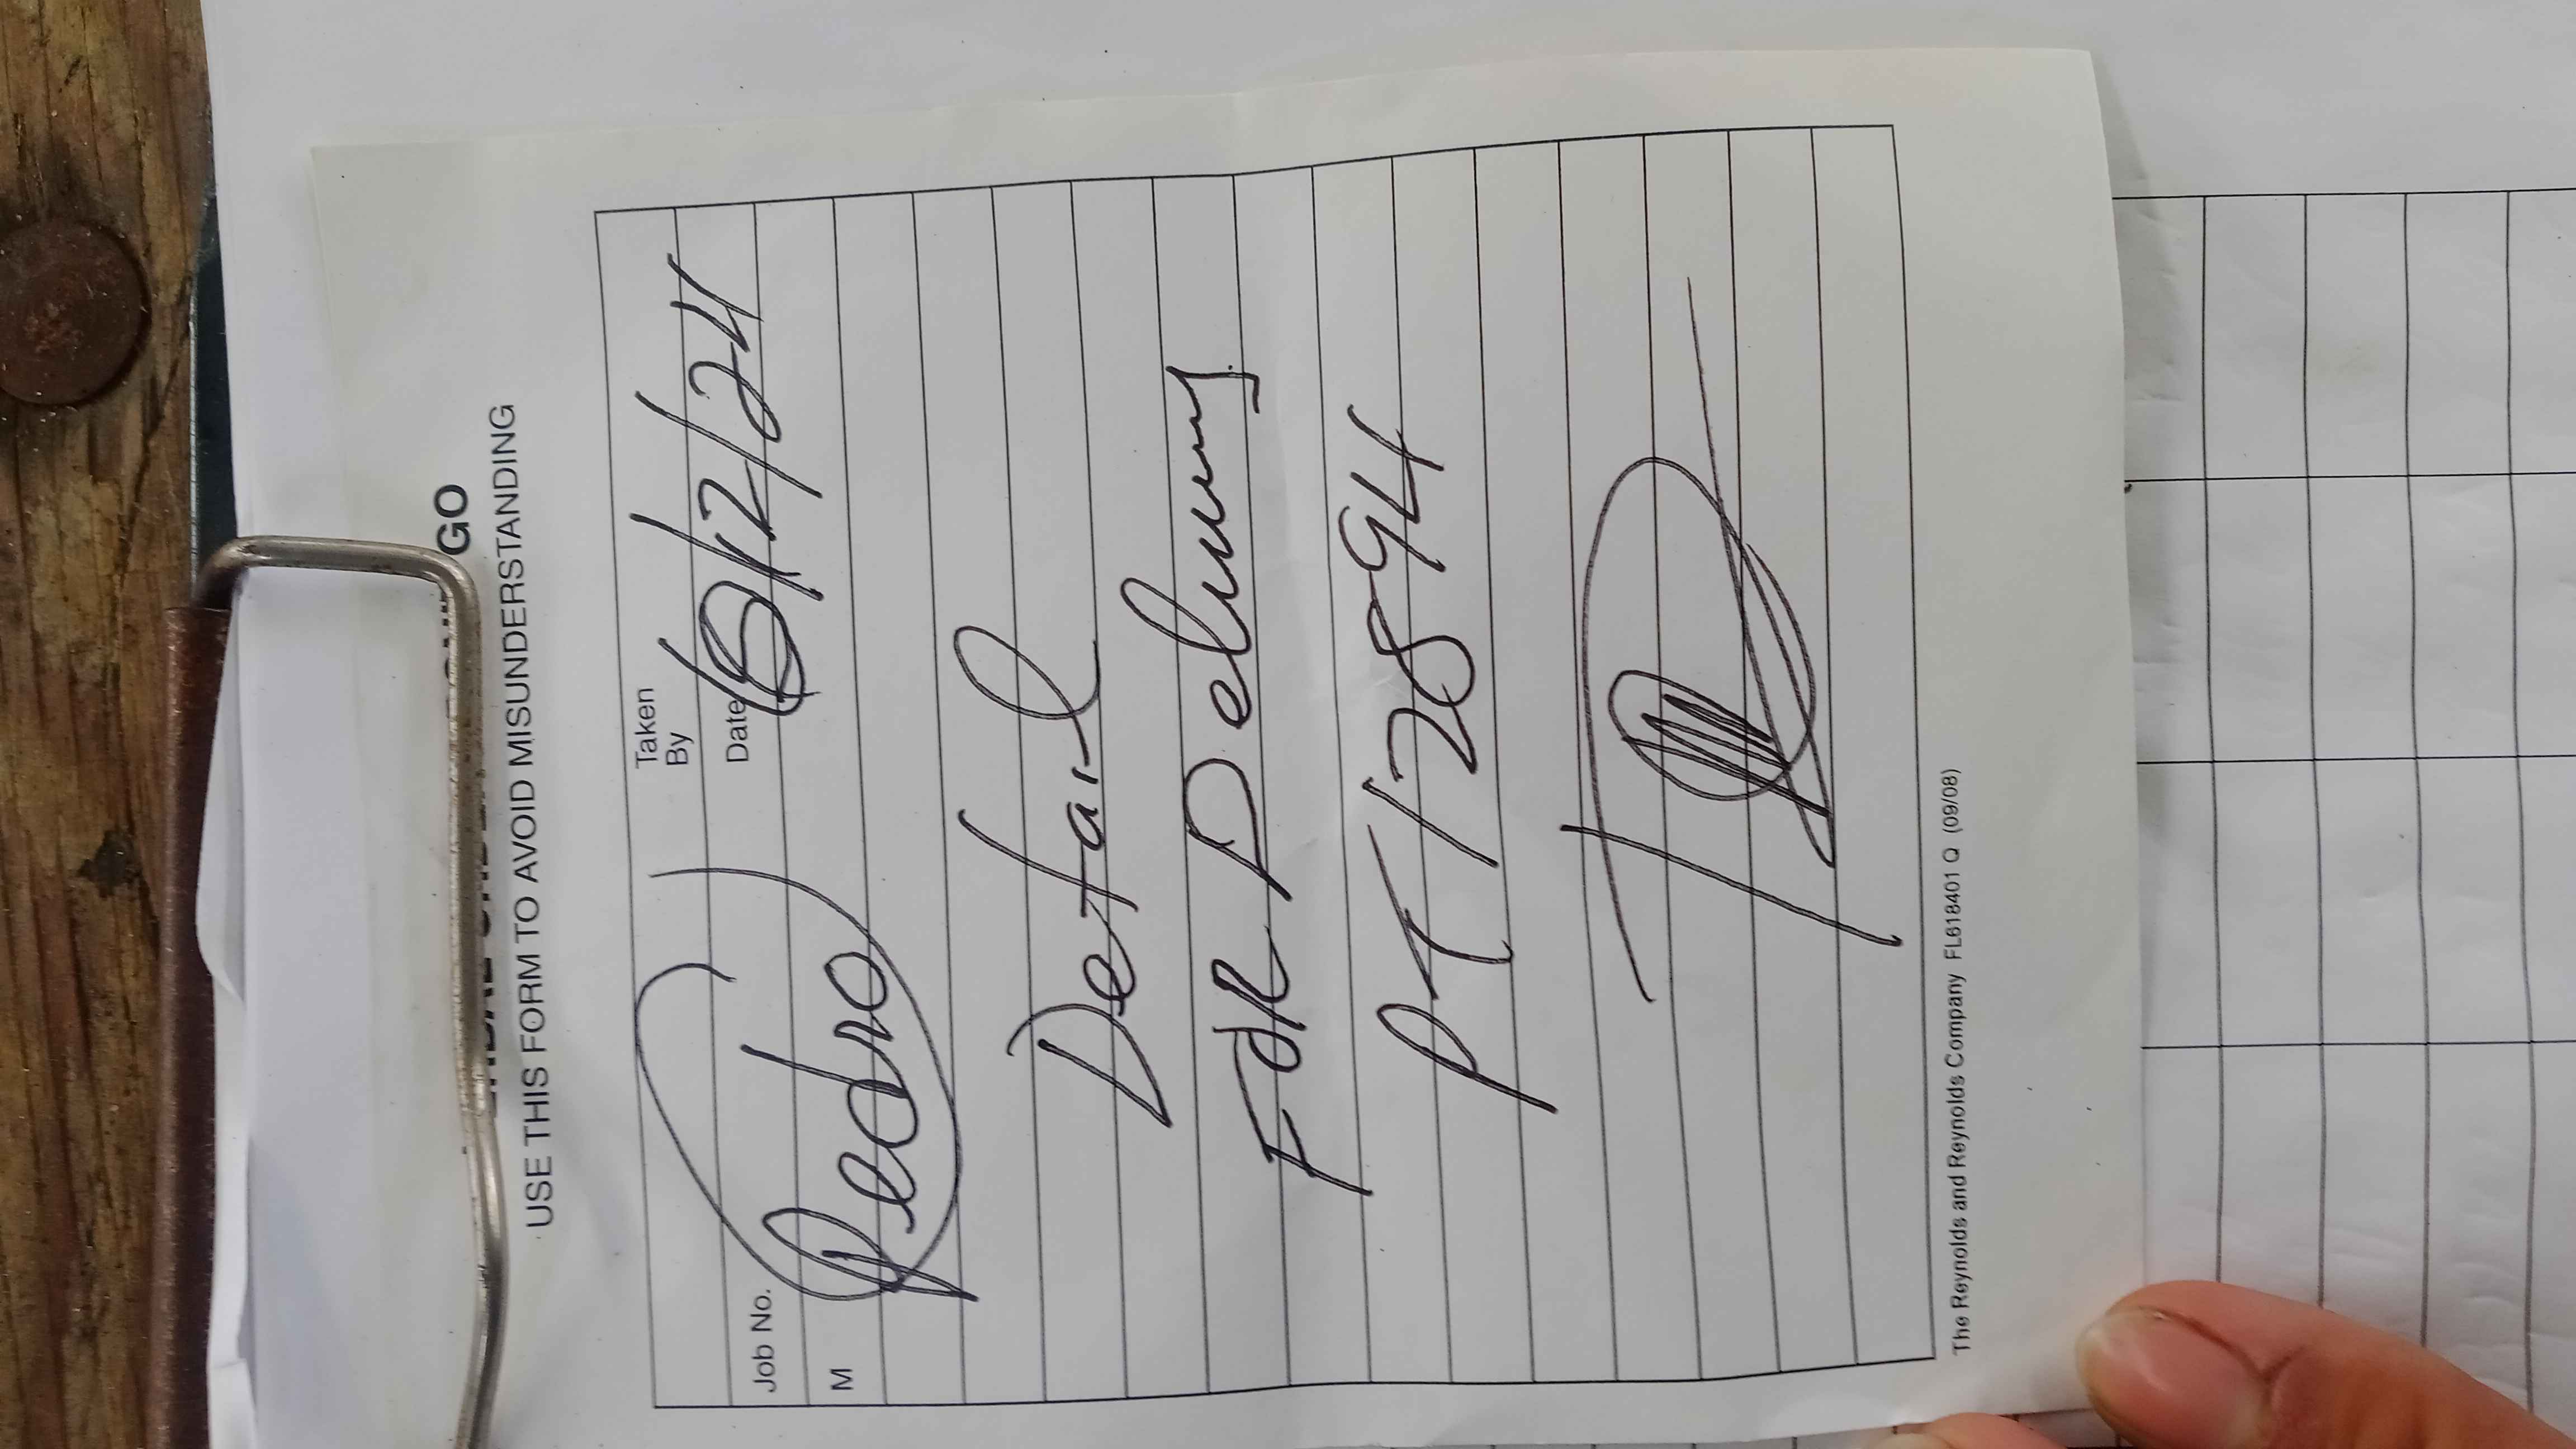 GO
USE THIS FORM TO AVOID MISUNDERSTANDING
Taken
By
Job No. Date 6/12/24
M Pedro
Detail
FOR Delivery
PT/2894
The Reynolds and Reynolds Company FL618401 Q (09/08)